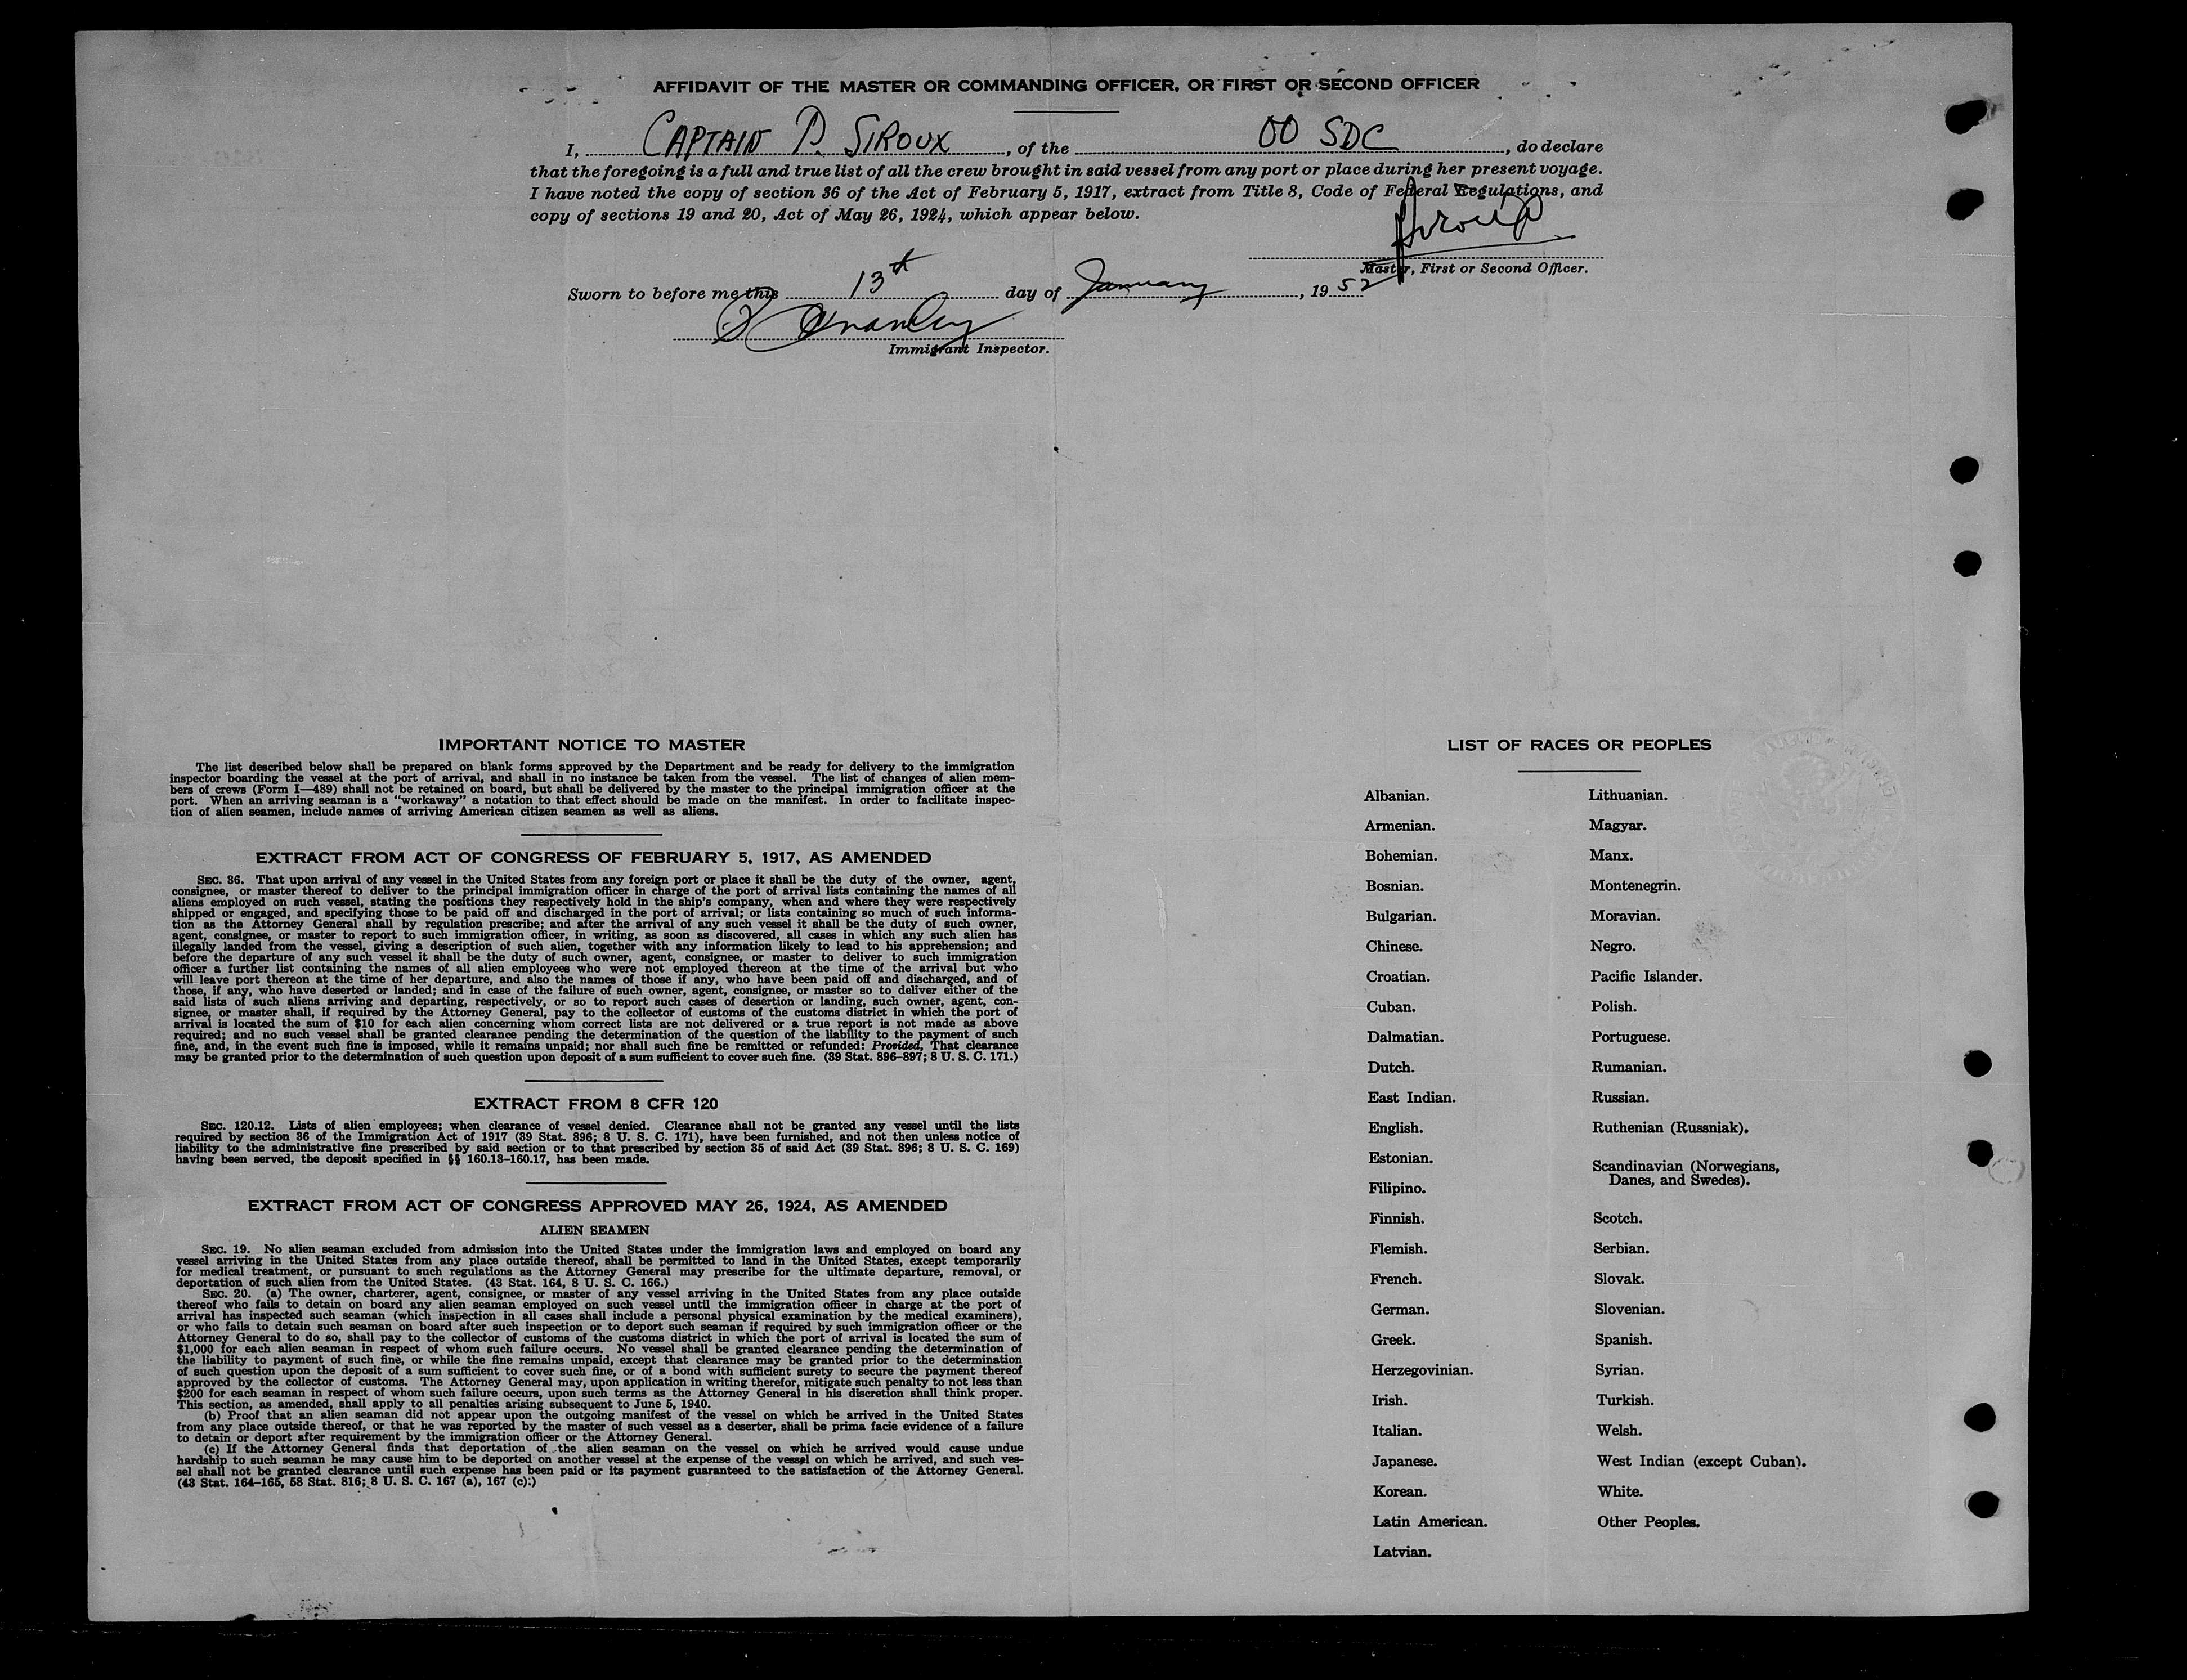 AFFIDAVIT OF THE MASTER OR COMMANDING OFFICER, OR FIRST OR SECOND OFFICER
I, CAPTAIN P. SIROUX, of the OO SDC, do declare
that the foregoing is a full and true list of all the crew brought in said vessel from any port or place during her present voyage.
I have noted the copy of section 36 of the Act of February 5, 1917, extract from Title 8, Code of Federal Regulations, and
copy of sections 19 and 20, Act of May 26, 1924, which appear below.
Master, First or Second Officer.
Sworn to before me this 13th day of January, 1952
Immigrant Inspector.
IMPORTANT NOTICE TO MASTER
The list described below shall be prepared on blank forms approved by the Department and be ready for delivery to the immigration
inspector boarding the vessel at the port of arrival, and shall in no instance be taken from the vessel. The list of changes of alien mem-
bers of crews (Form I—489) shall not be retained on board, but shall be delivered by the master to the principal immigration officer at the
port. When an arriving seaman is a "workaway" a notation to that effect should be made on the manifest. In order to facilitate inspec-
tion of alien seamen, include names of arriving American citizen seamen as well as aliens.
EXTRACT FROM ACT OF CONGRESS OF FEBRUARY 5, 1917, AS AMENDED
SEC. 36. That upon arrival of any vessel in the United States from any foreign port or place it shall be the duty of the owner, agent,
consignee, or master thereof to deliver to the principal immigration officer in charge of the port of arrival lists containing the names of all
aliens employed on such vessel, stating the positions they respectively hold in the ship's company, when and where they were respectively
shipped or engaged, and specifying those to be paid off and discharged in the port of arrival; or lists containing so much of such informa-
tion as the Attorney General shall by regulation prescribe; and after the arrival of any such vessel it shall be the duty of such owner,
agent, consignee, or master to report to such immigration officer, in writing, as soon as discovered, all cases in which any such alien has
illegally landed from the vessel, giving a description of such alien, together with any information likely to lead to his apprehension; and
before the departure of any such vessel it shall be the duty of such owner, agent, consignee, or master to deliver to such immigration
officer a further list containing the names of all alien employees who were not employed thereon at the time of the arrival but who
will leave port thereon at the time of her departure, and also the names of those if any, who have been paid off and discharged, and of
those, if any, who have deserted or landed; and in case of the failure of such owner, agent, consignee, or master so to deliver either of the
said lists of such aliens arriving and departing, respectively, or so to report such cases of desertion or landing, such owner, agent, con-
signee, or master shall, if required by the Attorney General, pay to the collector of customs of the customs district in which the port of
arrival is located the sum of $10 for each alien concerning whom correct lists are not delivered or a true report is not made as above
required; and no such vessel shall be granted clearance pending the determination of the question of the liability to the payment of such
fine, and, in the event such fine is imposed, while it remains unpaid; nor shall such fine be remitted or refunded: Provided, That clearance
may be granted prior to the determination of such question upon deposit of a sum sufficient to cover such fine. (39 Stat. 896–897; 8 U. S. C. 171.)
EXTRACT FROM 8 CFR 120
SEC. 120.12. Lists of alien employees; when clearance of vessel denied. Clearance shall not be granted any vessel until the lists
required by section 36 of the Immigration Act of 1917 (39 Stat. 896; 8 U. S. C. 171), have been furnished, and not then unless notice of
liability to the administrative fine prescribed by said section or to that prescribed by section 35 of said Act (39 Stat. 896; 8 U. S. C. 169)
having been served, the deposit specified in §§ 160.13–160.17, has been made.
EXTRACT FROM ACT OF CONGRESS APPROVED MAY 26, 1924, AS AMENDED
ALIEN SEAMEN
SEC. 19. No alien seaman excluded from admission into the United States under the immigration laws and employed on board any
vessel arriving in the United States from any place outside thereof, shall be permitted to land in the United States, except temporarily
for medical treatment, or pursuant to such regulations as the Attorney General may prescribe for the ultimate departure, removal, or
deportation of such alien from the United States. (43 Stat. 164, 8 U. S. C. 166.)
SEC. 20. (a) The owner, charterer, agent, consignee, or master of any vessel arriving in the United States from any place outside
thereof who fails to detain on board any alien seaman employed on such vessel until the immigration officer in charge at the port of
arrival has inspected such seaman (which inspection in all cases shall include a personal physical examination by the medical examiners),
or who fails to detain such seaman on board after such inspection or to deport such seaman if required by such immigration officer or the
Attorney General to do so, shall pay to the collector of customs of the customs district in which the port of arrival is located the sum of
$1,000 for each alien seaman in respect of whom such failure occurs. No vessel shall be granted clearance pending the determination of
the liability to payment of such fine, or while the fine remains unpaid, except that clearance may be granted prior to the determination
of such question upon the deposit of a sum sufficient to cover such fine, or of a bond with sufficient surety to secure the payment thereof
approved by the collector of customs. The Attorney General may, upon application in writing therefor, mitigate such penalty to not less than
$200 for each seaman in respect of whom such failure occurs, upon such terms as the Attorney General in his discretion shall think proper.
This section, as amended, shall apply to all penalties arising subsequent to June 5, 1940.
(b) Proof that an alien seaman did not appear upon the outgoing manifest of the vessel on which he arrived in the United States
from any place outside thereof, or that he was reported by the master of such vessel as a deserter, shall be prima facie evidence of a failure
to detain or deport after requirement by the immigration officer or the Attorney General.
(c) If the Attorney General finds that deportation of the alien seaman on the vessel on which he arrived would cause undue
hardship to such seaman he may cause him to be deported on another vessel at the expense of the vessel on which he arrived, and such ves-
sel shall not be granted clearance until such expense has been paid or its payment guaranteed to the satisfaction of the Attorney General.
(43 Stat. 164–165, 58 Stat. 816; 8 U. S. C. 167 (a), 167 (c):)
LIST OF RACES OR PEOPLES
Albanian.
Armenian.
Bohemian.
Bosnian.
Bulgarian.
Chinese.
Croatian.
Cuban.
Dalmatian.
Dutch.
East Indian.
English.
Estonian.
Filipino.
Finnish.
Flemish.
French.
German.
Greek.
Herzegovinian.
Irish.
Italian.
Japanese.
Korean.
Latin American.
Latvian.
Lithuanian.
Magyar.
Manx.
Montenegrin.
Moravian.
Negro.
Pacific Islander.
Polish.
Portuguese.
Rumanian.
Russian.
Ruthenian (Russniak).
Scandinavian (Norwegians,
Danes, and Swedes).
Scotch.
Serbian.
Slovak.
Slovenian.
Spanish.
Syrian.
Turkish.
Welsh.
West Indian (except Cuban).
White.
Other Peoples.